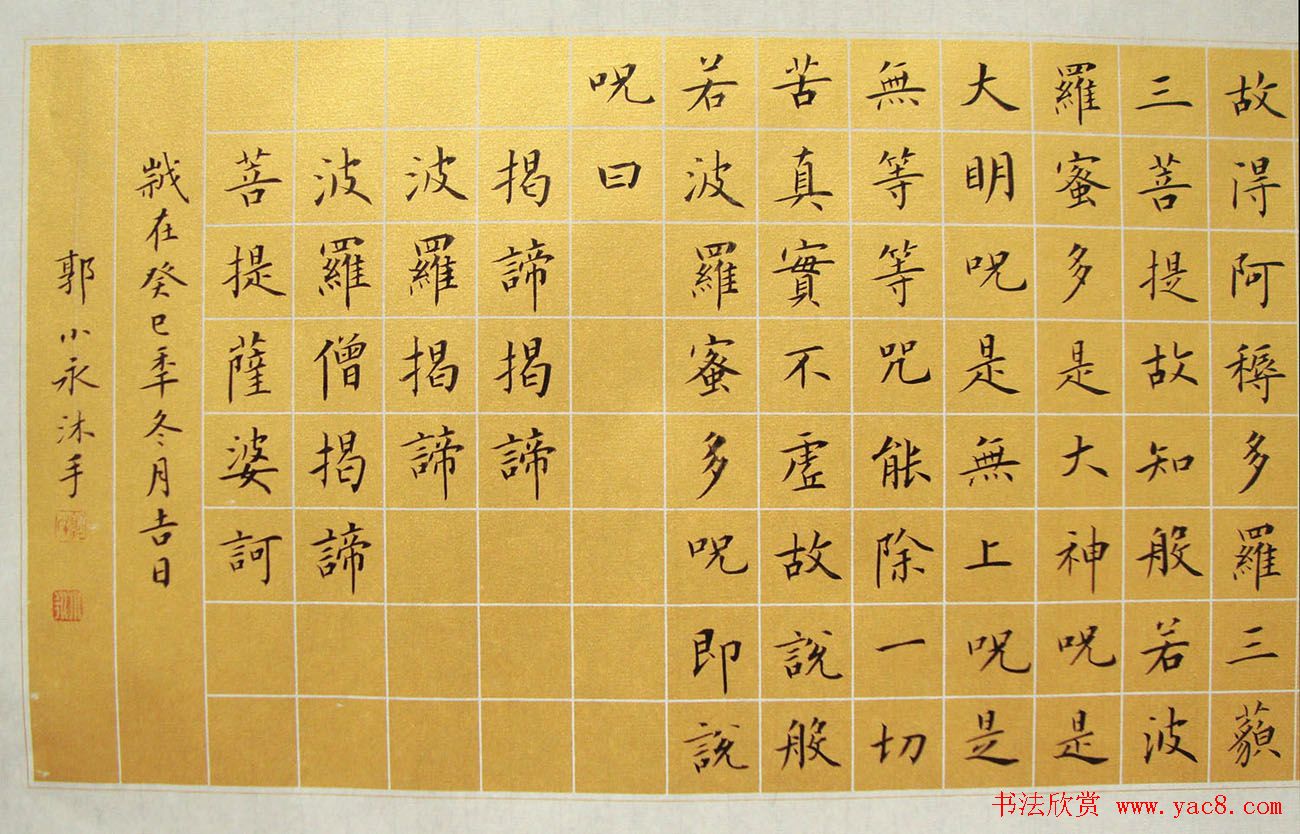 故得阿耨多羅三藐
三菩提故知般若波
羅蜜多是大神呪是
大明呪是無上呪是
無等等咒能除一切
苦真實不虛故說般
若波羅蜜多呪即說
呪曰
揭諦揭諦
波羅揭諦
波羅僧揭諦
菩提薩婆訶
歲在癸巳季冬月吉日
郭小永沐手
书法欣赏 www.yac8.com